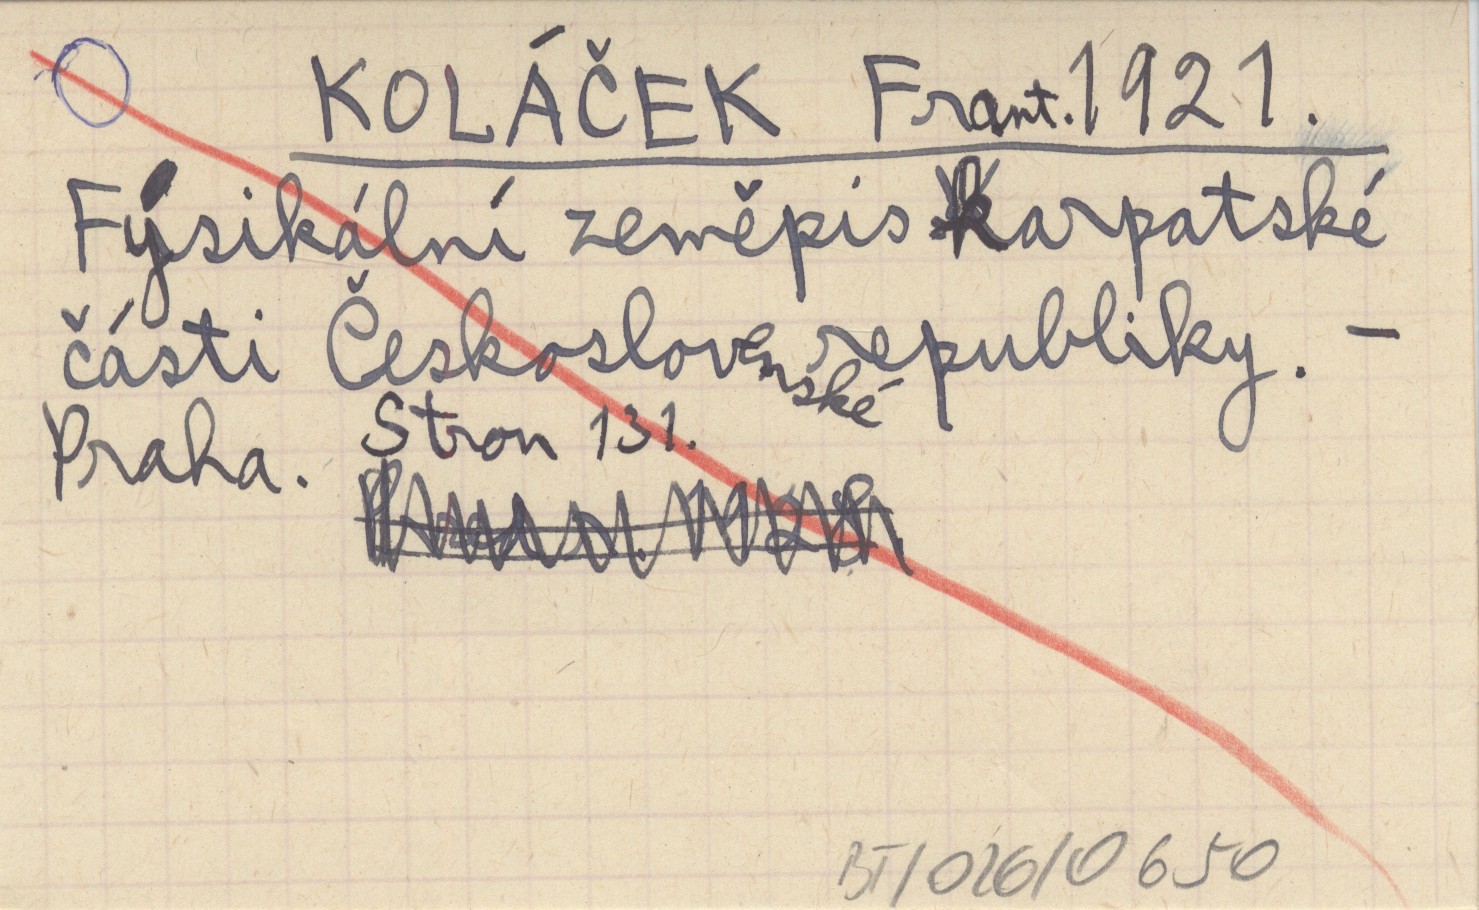 KOLÁČEK Frant. 1921.
Fysikální zeměpis karpatské
části Československenské republiky. –
Praha. Stron 131.
BT/026/0650